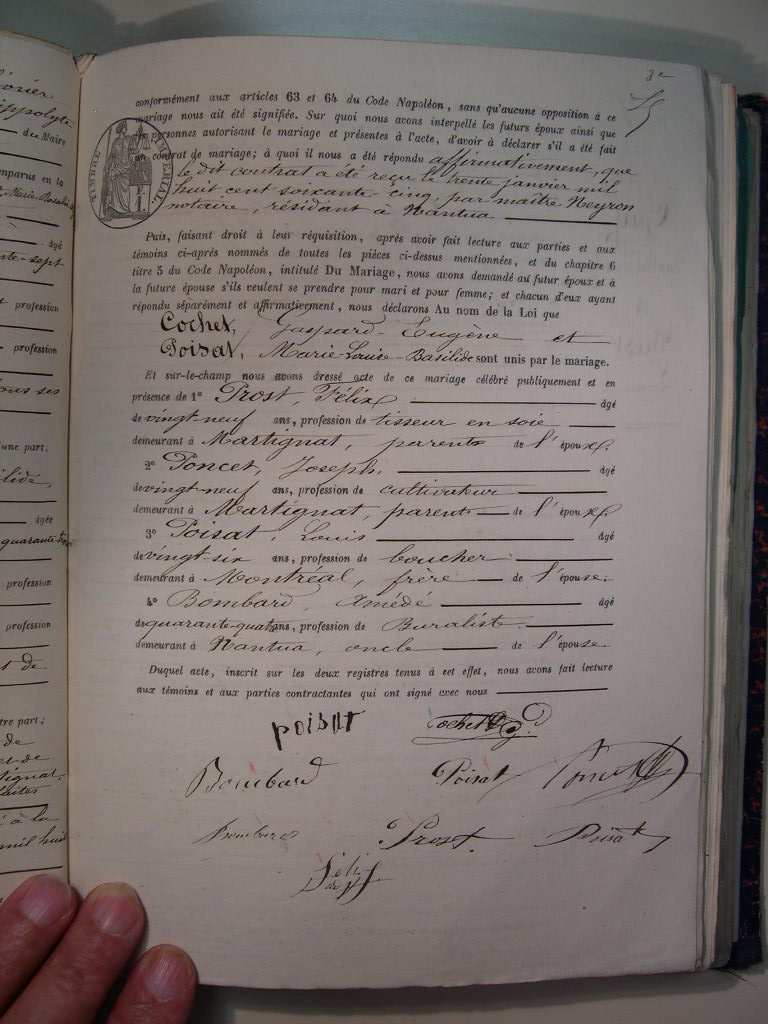 ovier
ippolyte
du Maire
omparus en la
Marie
âgé
nte-sept
profession
profession
ous ses
une part.
ilide,
âgée
quarante
profession
profession
t de
tre part;
de
et de
tignat,
à la
mil huit
3e
conformément aux articles 63 et 64 du Code Napoléon, sans qu'aucune opposition à ce
mariage nous ait été signifiée. Sur quoi nous avons interpellé les futurs époux ainsi que
les personnes autorisant le mariage et présentes à l'acte, d'avoir à déclarer s'il a été fait
un contrat de mariage; à quoi il nous a été répondu affirmativement, que
le dit contrat a été reçu le trente janvier mil
huit cent soixante-cinq, par maître Neyron
notaire, résidant à Nantua
TIMBRE IMPÉRIAL
Puis, faisant droit à leur réquisition, après avoir fait lecture aux parties et aux
témoins ci-après nommés de toutes les pièces ci-dessus mentionnées, et du chapitre 6
titre 5 du Code Napoléon, intitulé Du Mariage, nous avons demandé au futur époux et à
la future épouse s'ils veulent se prendre pour mari et pour femme; et chacun d'eux ayant
répondu séparément et affirmativement, nous déclarons Au nom de la Loi que
Cochet, Gaspard-Eugène et
Poisat, Marie-Louise-Basilide sont unis par le mariage.
Et sur-le-champ nous avons dressé acte de ce mariage célébré publiquement et en
présence de 1° Prost, Félix âgé
de vingt-neuf ans, profession de tisseur en soie
demeurant à Martignat, parent de l'époux.
2° Poncet, Joseph. âgé
de vingt-neuf ans, profession de cultivateur
demeurant à Martignat, parent de l'époux
3° Poisat, Louis âgé
de vingt-six ans, profession de boucher
demeurant à Montréal, frère de l'épouse.
4° Bombard, Amédé âgé
de quarante-quatre ans, profession de Buraliste.
demeurant à Nantua, oncle de l'épouse.
Duquel acte, inscrit sur les deux registres tenus à cet effet, nous avons fait lecture
aux témoins et aux parties contractantes qui ont signé avec nous
poisat Cochet
Bombard Poisat Poncet
Bombard Prost. Poisat